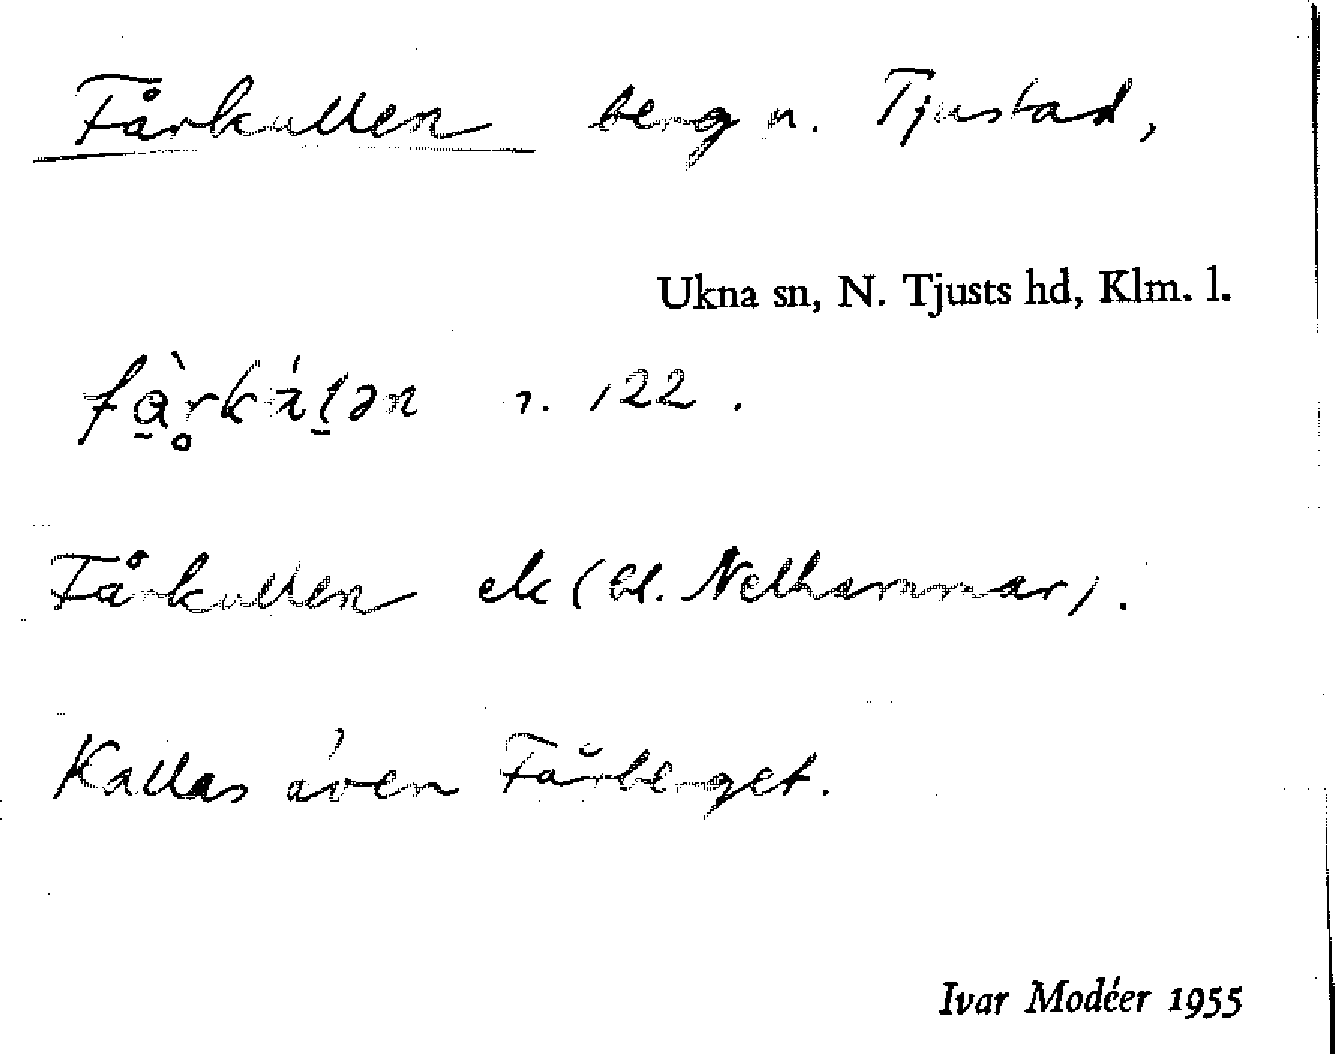 Fårkullen berg n. Tjustad,
Ukna sn, N. Tjusts hd, Klm. l.
122.
Fårkullen ek (bl. Nelhammar).
Kallas även Fårberget.
Ivar Modéer 1955